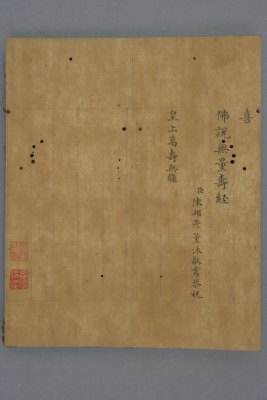 喜
佛說無量壽經
臣陳邦彥薰沐敬書恭祝
皇上萬壽無疆